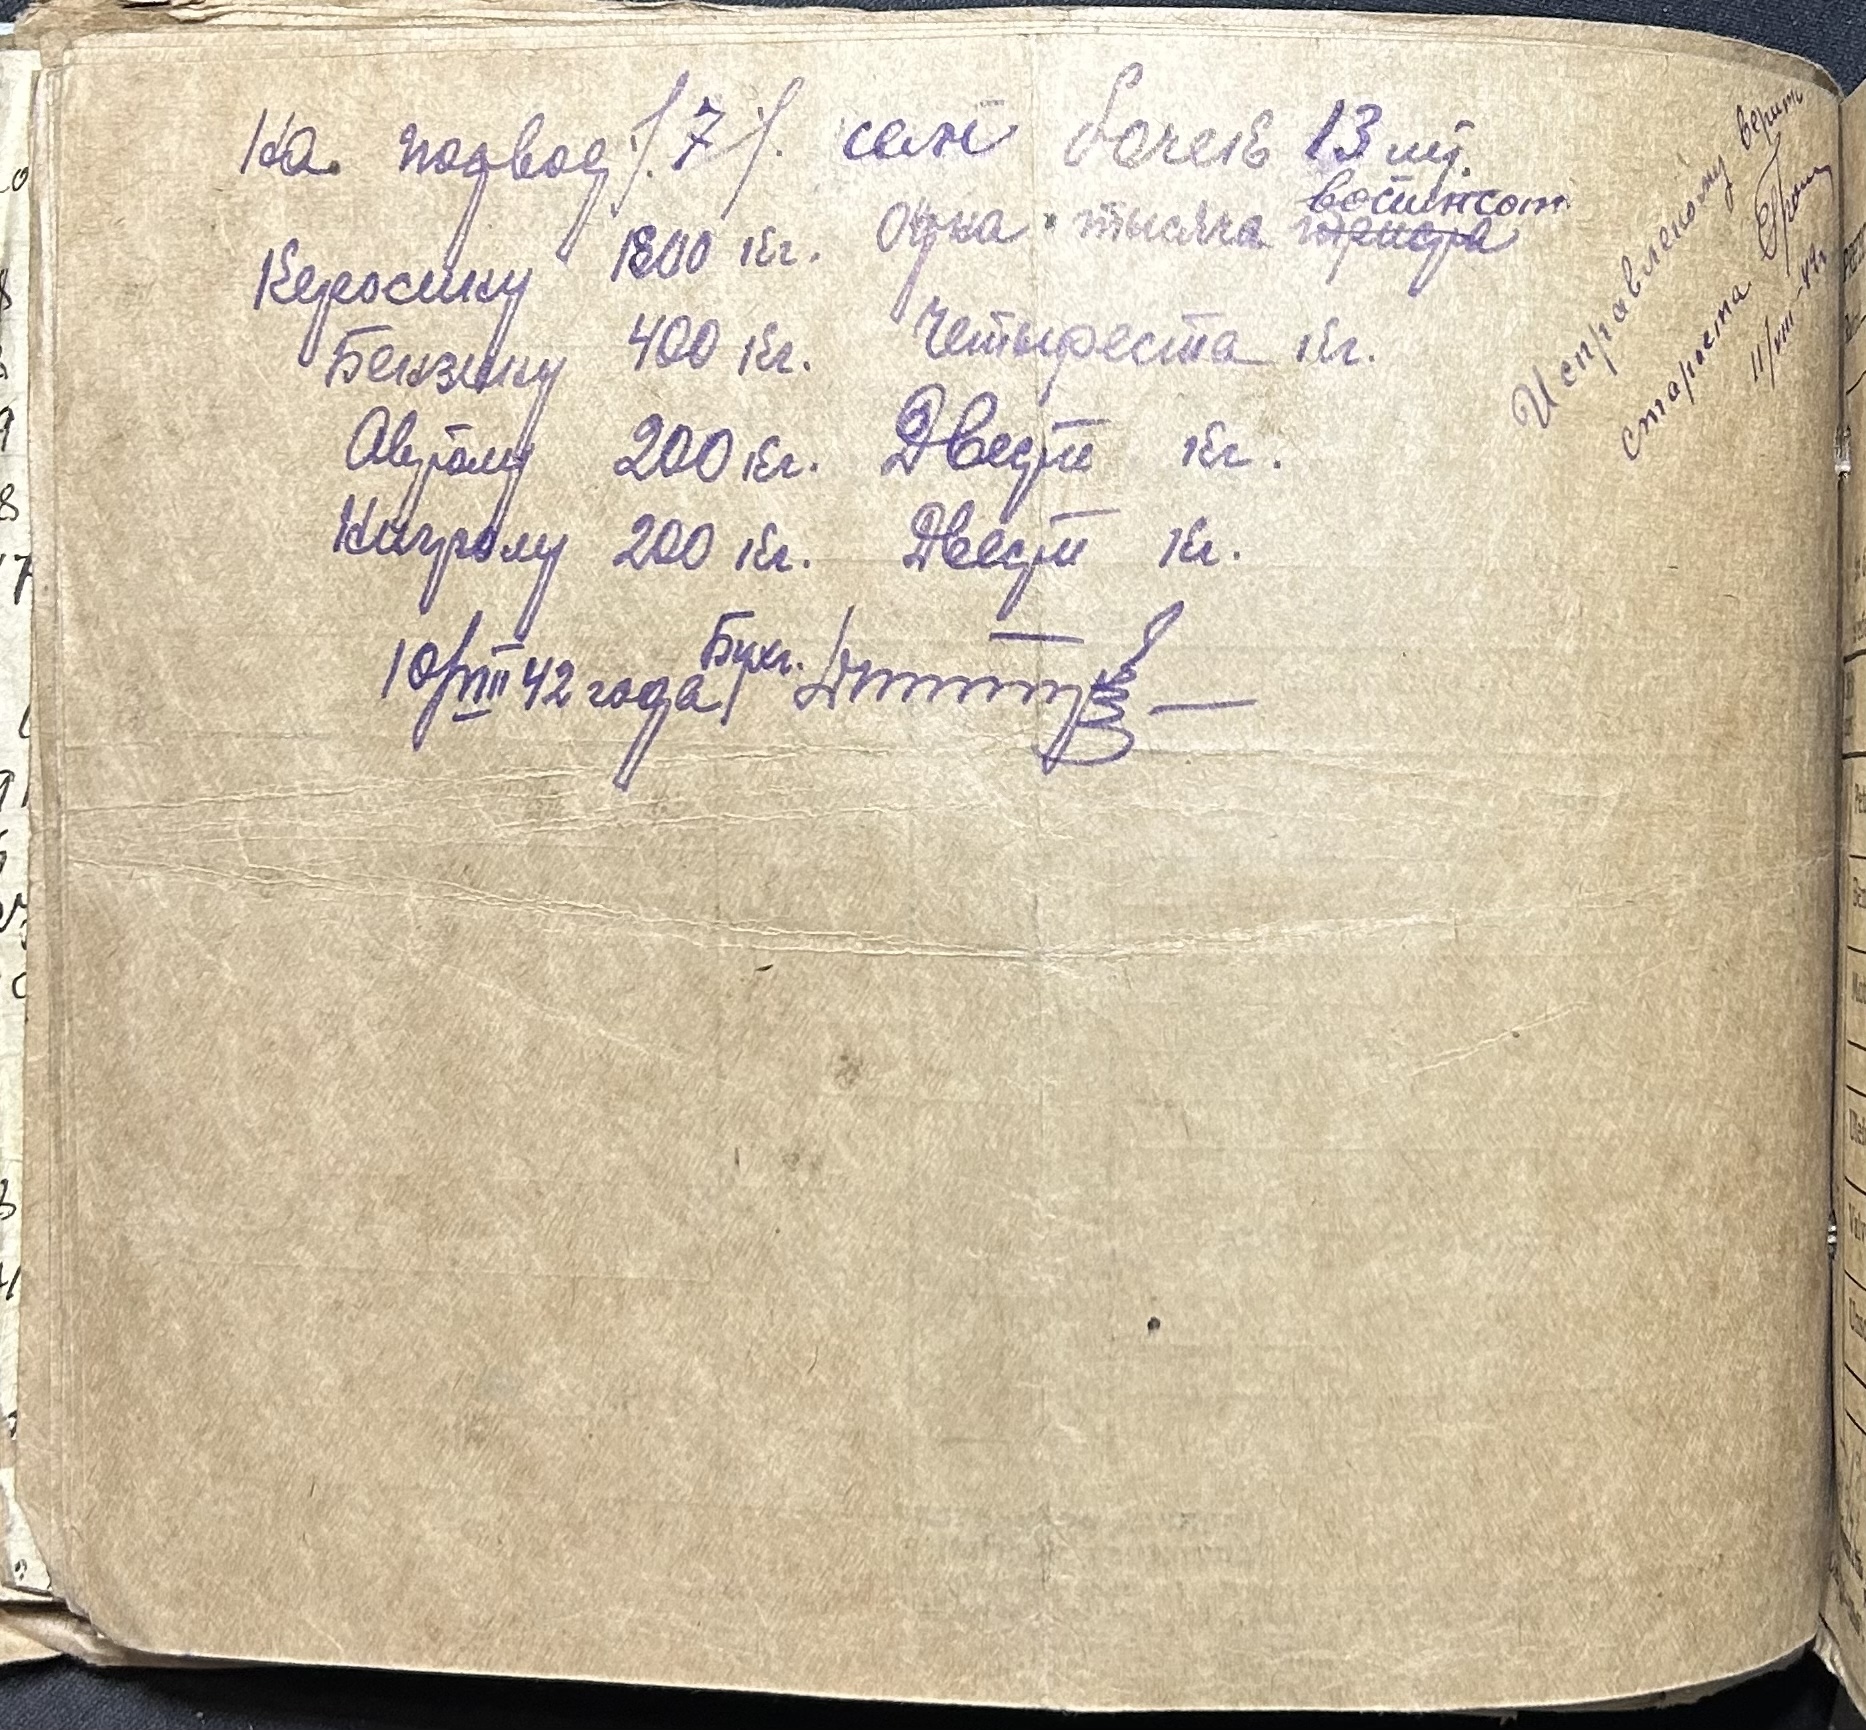 На подвод /.7/. семь бочек 13 шт.
Керосину 1800 кг. Одна тысяча восемсот
Бензину 400 кг. Четыреста кг.
Автолу 200 кг. Двести кг.
Нигролу 200 кг. Двести кг.
10/VIII 42 года Бухг.
Исправленому верить
староста
11/VIII-42г